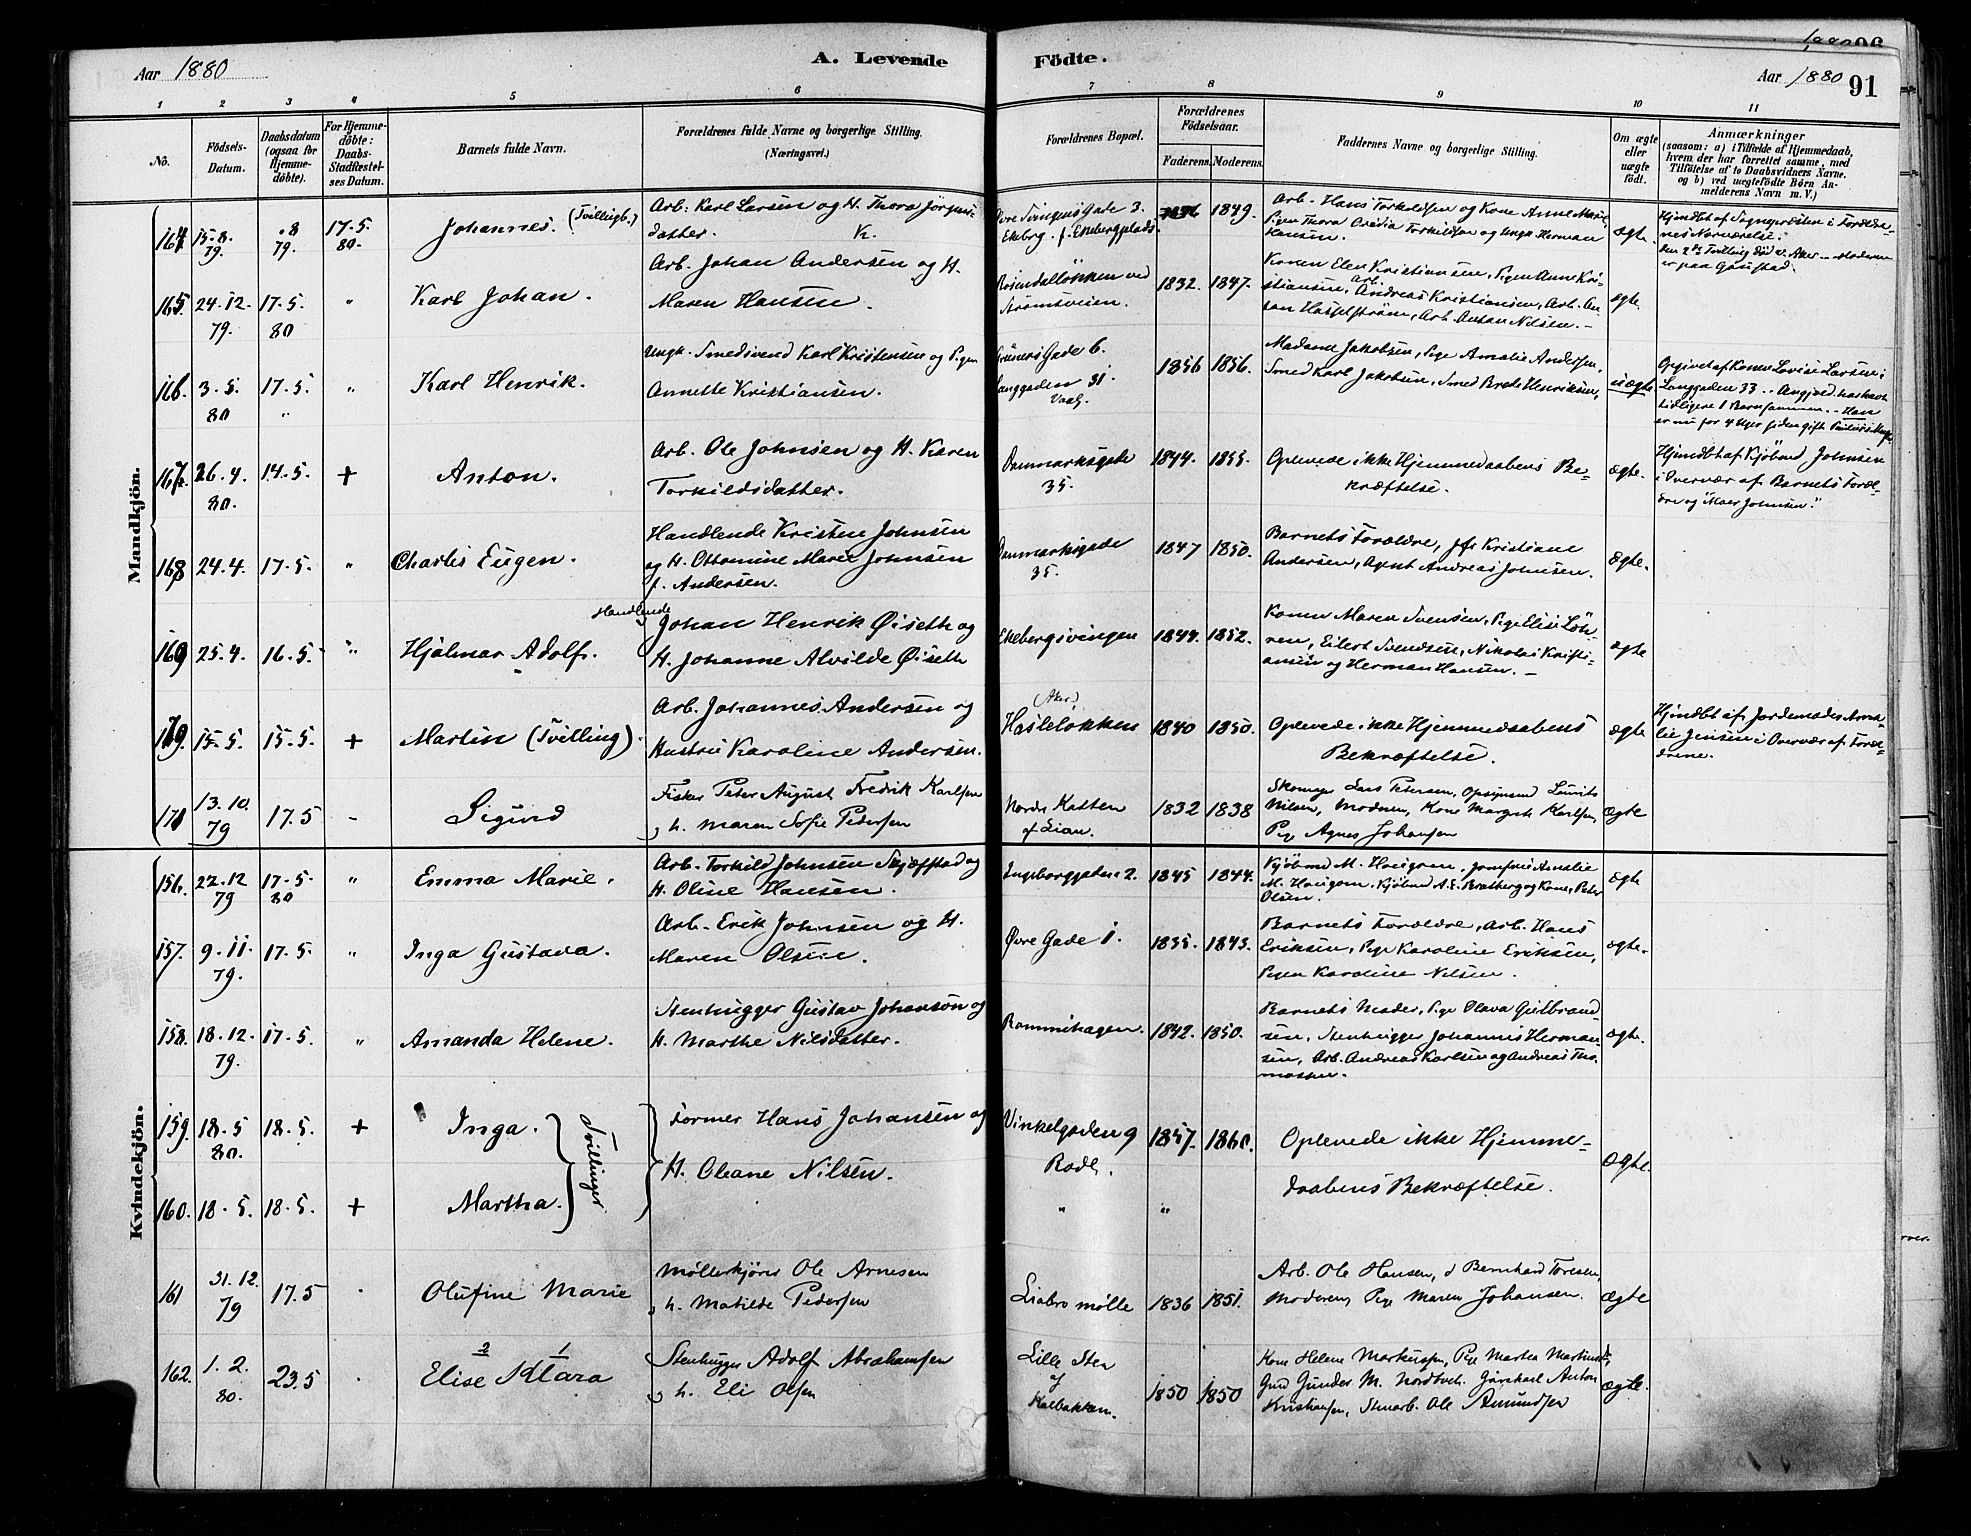 Aar 1880
A. Levende
Födte.
1880
Aar 1880
91
1 2 3 4 5 6 7 8 9 10 11
No.
Födsels-
Datum.
Daabsdatum
(ogsaa for
Hjemme-
döbte).
For Hjemme-
döbte:
Daabs-
Stadfæstel-
ses Datum.
Barnets fulde Navn.
Forældrenes fulde Navne og borgerlige Stilling.
(Næringsvei.)
Forældrenes Bopæl.
Forældrenes
Födselsaar.
Faderens. Moderens.
Faddernes Navne og borgerlige Stilling.
Om ægte
eller
uægte
födt.
Anmærkninger
(saasom: a) i Tilfælde af Hjemmedaab,
hvem der har forrettet samme, med
Tilföielse af to Daabsvidners Navne.
og b) ved uægtefödte Börn An-
melderens Navn m. V.)
Mandkjön.
164. 15.8.
79.
.8
79.
17.5.
80.
Johannes. (Tvillingb.)
Arb. Karl Larsen og H. Thora Jörgens-
datter.
1849.
Arb. Hans Torkildsen og Kone Anne Marie,
Pigen Thora
Hansen.
ægte.
165. 24.12.
79.
17.5.
80
"
Karl Johan.
Arb. Johan Andersen og H.
Maren Hansen.
Rosendallökken ved
Strömsveien.
1832. 1847.
Konen Elen Kristiansen, Pigen Anne Kri-
stiansen, Arb. Andreas Kristiansen, Arb. An-
ton Hasselström, Arb. Anton Nilsen.
ægte.
166. 3.5.
80
17.5.
"
"
Karl Henrik.
Ungk. Smedsvend Karl Kristensen og Pigen
Annette Kristiansen.
Grüners Gade 6.
Langgaden 31.
Vaalg.
1856 1856.
Madame Jakobsen, Pige Amalie Andersen,
Smed Karl Jakobsen, Smed Brede Henriksen,
uægte.
Opgivet af Konen Lovise Larsen i
Langgaden 33.
167. 26.4.
80.
14.5.
+
Anton.
Arb. Ole Johnsen og H. Karen
Torkildsdatter.
Danmarksgade
35.
1844. 1855.
Oplevede ikke Hjemmedaabens Be-
kræftelse.
ægte.
Hjmdbt af Kjöbmd Johnsen
i Overvær af Barnets Foræl-
dre og "Moer Johnsen".
168 24.4. 17.5. "
Charles Eugen.
Handlende Kristen Johnsen
og H. Ottomine Marie Johnsen
f. Andersen.
Danmarksgade
35.
1847 1850.
Barnets Forældre, Jfr Kristiane
Andersen, Agent Andreas Johnsen.
ægte.
169 25.4. 16.5. "
Hjalmar Adolf.
Handlende
Johan Henrik Öiseth og
H. Johanne Alvilde Öiseth
Ekebergsvingen
1844. 1852.
Konen Maren Svensen, Pige Elise Löh-
ren, Eilert Svendsen, Nikolai Kristi-
ansen og Herman Hansen.
ægte
170. 15.5. 15.5. +
Martin (Tvilling).
Arb. Johannes Andersen og
Hustru Karoline Andersen.
(Aker)
Haslelökken
1840 1850.
Oplevede ikke Hjemmedaabens
Bekræftelse.
ægte
Hjmdbt af Jordemoder Ama-
lie Jensen i Overvær af Foræl-
drene.
171 13.10.
79
17.5 -
Sigurd
Fisker Peter August Fredrik Karlsen
og h. Maren Sofie Pedersen
Nordre Katten
af Lian.
1832 1838
Skomager Lars Petersen, Opsynsmd Laurits
Nilsen, Moderen, Kone Margrete Karlsen,
Pige Agnes Johansen
ægte
Kvindekjön.
156. 22.12
79
17.5.
80
"
Emma Marie.
Arb. Torkild Johnsen Skjæfstad og
H. Oline Hansen.
Ingeborggaden 2.
1845 1844.
Kjöbmd M. Haugom, Jomfru Amalie
M. Haugom, Kjöbmd A. E. Bratberg og Kone, Peter
Olsen.
ægte
157. 9.11.
79.
17.5. "
Inga Gustava.
Arb. Erik Johnsen og H.
Maren Olsen.
Övre Gade 1.
1835. 1843.
Barnets Forældre, Arb. Hans
Eriksen, Pige Karoline Eriksen,
Pigen Karoline Nilsen.
ægte.
158. 18.12.
79.
17.5. "
Amanda Helene.
Stenhugger Gustav Johanson og
H. Marthe Nilsdatter.
Bommihagen.
1842. 1850.
Barnets Moder, Pige Olava Gulbrand-
sen, Stenhugger Johannes Herman-
sen, Arb. Andreas Karlsen og Andreas Tho-
massen.
ægte.
159. 18.5
80.
18.5. +
Inga.
Tvillinger
Former Hans Johansen og
H. Oleane Nilsen.
Vinkelgaden 9
Rodl.
1857. 1860.
Oplevede ikke Hjemme-
daabens Bekræftelse.
ægte.
160. 18.5. 18.5. +
Martha.
" "
161 31.12.
79
17.5
Olufine Marie
Möllerkjörer Ole Arnesen
og h. Matilde Pedersen
Liabro mölle
1836 1851.
Arb. Ole Hansen, d Bernhard Toresen,
Moderen, Pige Maren Johansen.
ægte
162. 1.2.
80.
23.5
2 1
Elise Klara
Stenhugger Adolf Abrahamsen
og h. Eli Olsen
Lille Sten
af
Kalbakken.
1850 1850
Kone Helene Markussen, Pige Martea
Gmd Gunder M. Nordtvet, Anton
Kristiansen, Stenarb. Ole Amundsen
ægte.